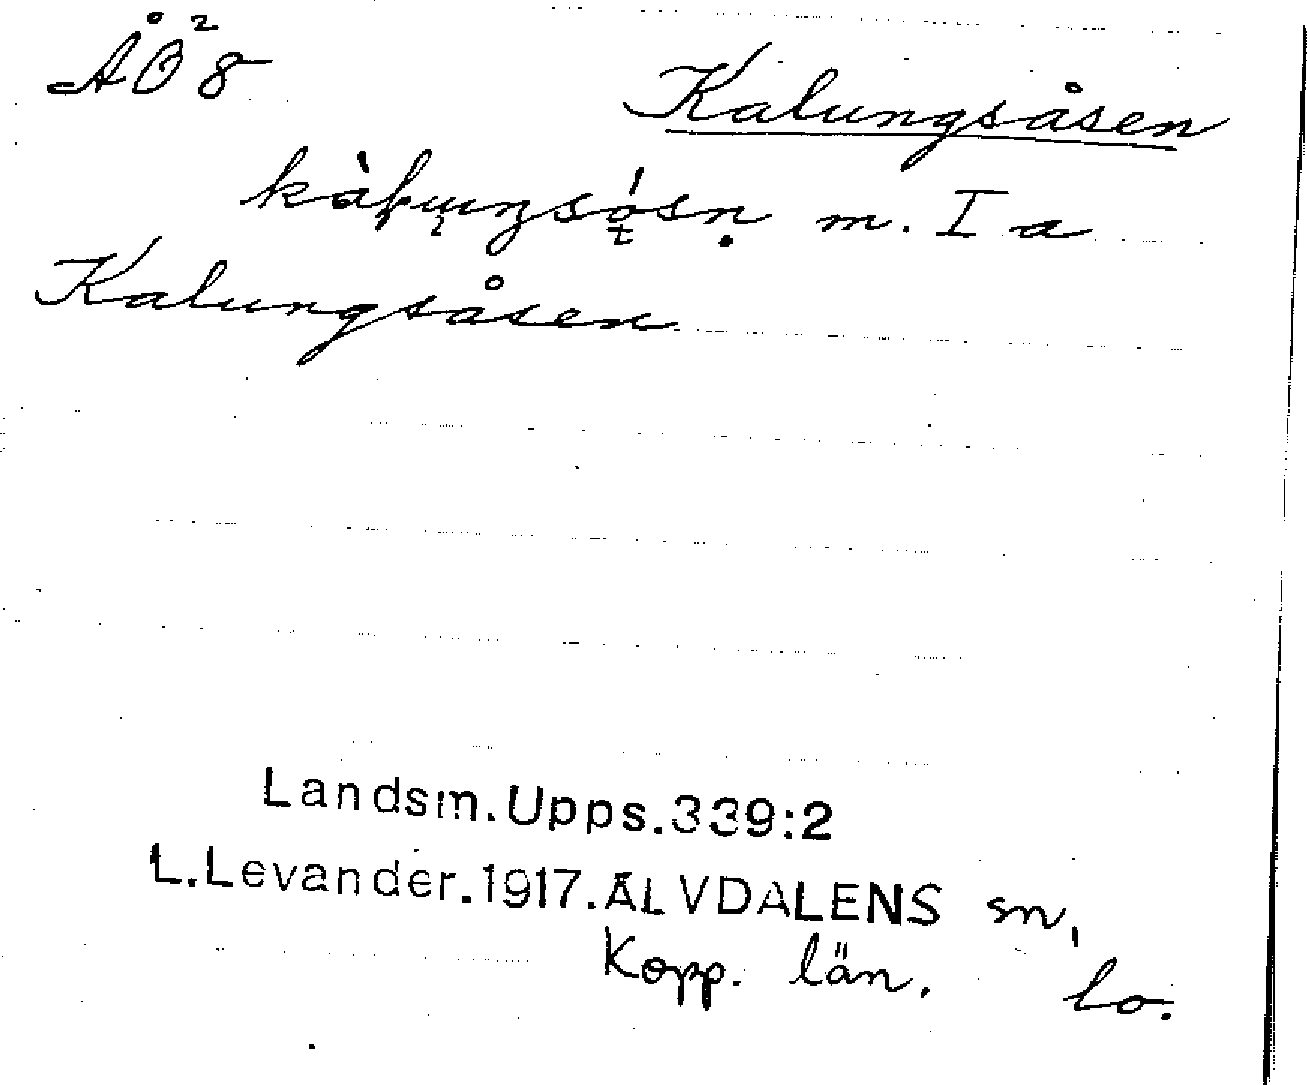 ÅÖ² 8
Kalungsåsen
m. I a
Kalungsåsen
Landsm.Upps.339:2
L.Levander.1917.ÄLVDALENS sn,
Kopp. län. lo.